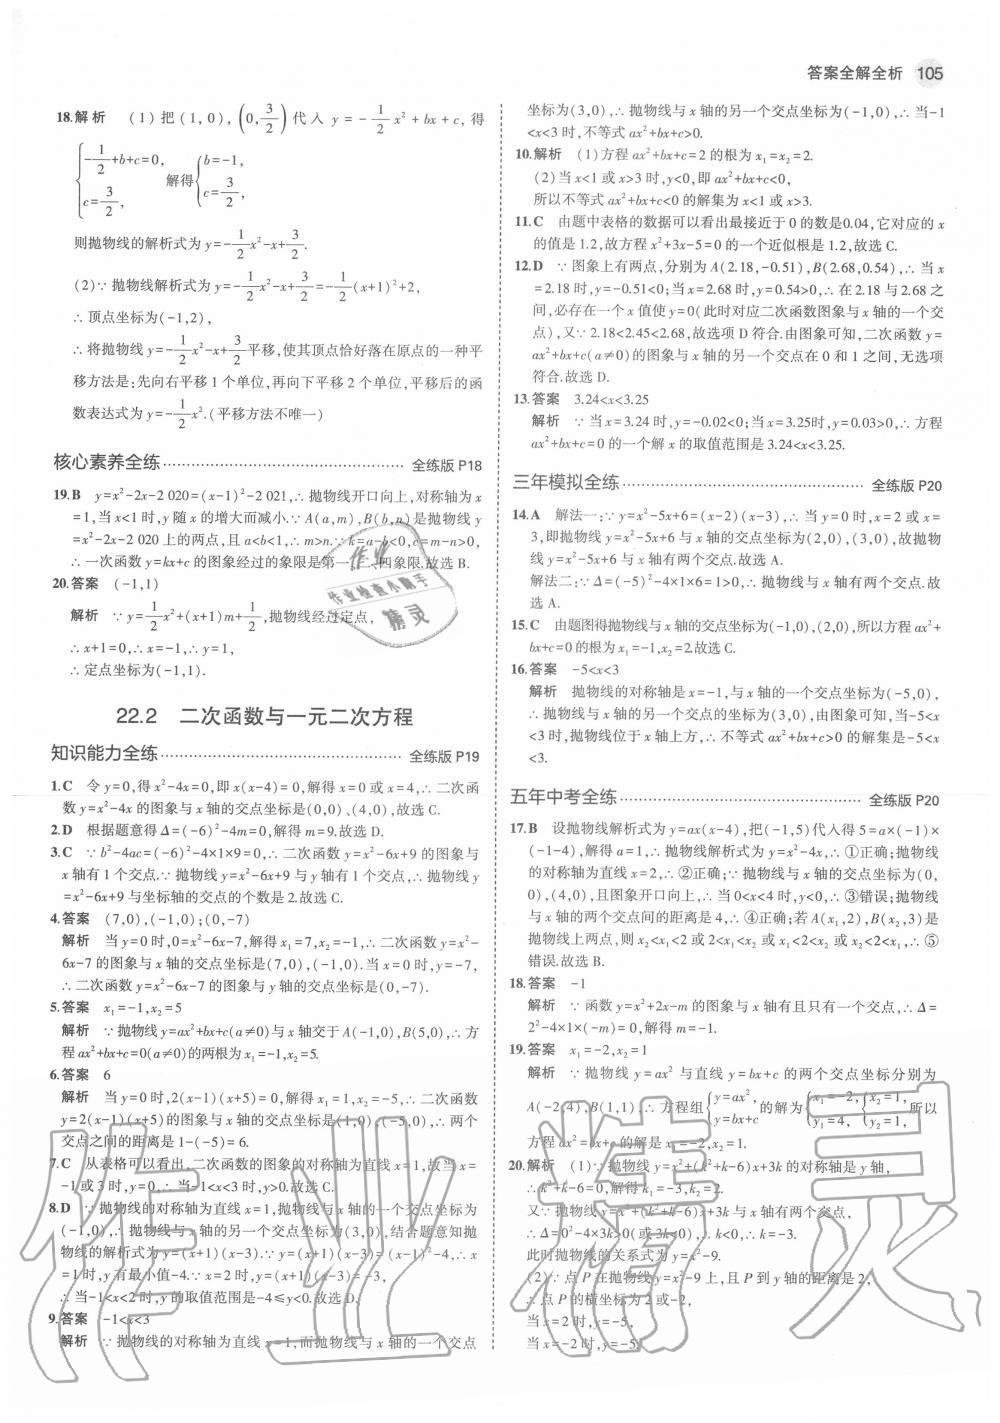 答案全解全析 105
18.解析 (1)把(1,0),(0,3/2)代入 y=-1/2x²+bx+c,得
{-1/2+b+c=0, c=3/2, 解得{b=-1, c=3/2,
则抛物线的解析式为y=-1/2x²-x+3/2.
(2)∵抛物线解析式为y=-1/2x²-x+3/2=-1/2(x+1)²+2,
∴顶点坐标为(-1,2),
∴将抛物线y=-1/2x²-x+3/2平移,使其顶点恰好落在原点的一种平
移方法是:先向右平移1个单位,再向下平移2个单位,平移后的函
数表达式为y=-1/2x².(平移方法不唯一)
核心素养全练 全练版P18
19.B y=x²-2x-2 020=(x-1)²-2 021,∴抛物线开口向上,对称轴为x
=1,当x<1时,y随x的增大而减小.∵A(a,m),B(b,n)是抛物线y
=x²-2x-2 020上的两点,且a<b<1,∴m>n.∵k=a-b<0,c=m-n>0,
∴一次函数y=kx+c的图象经过的象限是第一、二、四象限.故选B.
20.答案 (-1,1)
解析 ∵y=1/2x²+(x+1)m+1/2,抛物线经过定点,
∴x+1=0,∴x=-1,∴y=1,
∴定点坐标为(-1,1).
22.2 二次函数与一元二次方程
知识能力全练 全练版P19
1.C 令y=0,得x²-4x=0,即x(x-4)=0,解得x=0或x=4,∴二次函
数y=x²-4x的图象与x轴的交点坐标是(0,0)、(4,0),故选C.
2.D 根据题意得Δ=(-6)²-4m=0,解得m=9.故选D.
3.C ∵b²-4ac=(-6)²-4×1×9=0,∴二次函数y=x²-6x+9的图象与
x轴有1个交点.∵抛物线y=x²-6x+9与y轴有1个交点,∴抛物线y
=x²-6x+9与坐标轴的交点的个数是2.故选C.
4.答案 (7,0),(-1,0);(0,-7)
解析 当y=0时,0=x²-6x-7,解得x₁=7,x₂=-1,∴二次函数y=x²-
6x-7的图象与x轴的交点坐标是(7,0),(-1,0).当x=0时,y=-7,
∴二次函数y=x²-6x-7的图象与y轴的交点坐标是(0,-7).
5.答案 x₁=-1,x₂=5
解析 ∵抛物线y=ax²+bx+c(a≠0)与x轴交于A(-1,0),B(5,0),∴方
程ax²+bx+c=0(a≠0)的两根为x₁=-1,x₂=5.
6.答案 6
解析 当y=0时,2(x-1)(x+5)=0,解得x₁=1,x₂=-5,∴二次函数
y=2(x-1)(x+5)的图象与x轴的交点坐标是(1,0),(-5,0),∴两个
交点之间的距离是1-(-5)=6.
7.C 从表格可以看出,二次函数的图象的对称轴为直线x=1,故当x=
-1或3时,y=0.∴当-1<x<3时,y>0.故选C.
8.D ∵抛物线的对称轴为直线x=1,抛物线与x轴的一个交点坐标为
(-1,0),∴抛物线与x轴的另一个交点坐标为(3,0),结合题意知抛
物线的解析式为y=(x+1)(x-3).∵y=(x+1)(x-3)=(x-1)²-4,∴x
=1时,y有最小值-4.∵x=2时,y=(x+1)(x-3)=-3,
∴当-1<x<2时,y的取值范围是-4≤y<0.故选D.
9.答案 -1<x<3
解析 ∵抛物线的对称轴为直线x=1,而抛物线与x轴的一个交点
坐标为(3,0),∴抛物线与x轴的另一个交点坐标为(-1,0),∴当-1
<x<3时,不等式ax²+bx+c>0.
10.解析 (1)方程ax²+bx+c=2的根为x₁=x₂=2.
(2)当x<1或x>3时,y<0,即ax²+bx+c<0,
所以不等式ax²+bx+c<0的解集为x<1或x>3.
11.C 由题中表格的数据可以看出最接近于0的数是0.04,它对应的x
的值是1.2,故方程x²+3x-5=0的一个近似根是1.2,故选C.
12.D ∵图象上有两点,分别为A(2.18,-0.51),B(2.68,0.54),∴当x
=2.18时,y=-0.51<0;当x=2.68时,y=0.54>0,∴在2.18与2.68之
间,必存在一个x值使y=0(此时对应二次函数图象与x轴的一个交
点),又∵2.18<2.45<2.68,故选项D符合.由图象可知,二次函数y=
ax²+bx+c(a≠0)的图象与x轴的另一个交点在0和1之间,无选项
符合.故选D.
13.答案 3.24<x<3.25
解析 ∵当x=3.24时,y=-0.02<0;当x=3.25时,y=0.03>0,∴方程
ax²+bx+c=0的一个解x的取值范围是3.24<x<3.25.
三年模拟全练 全练版P20
14.A 解法一:∵y=x²-5x+6=(x-2)(x-3),∴当y=0时,x=2或x=
3,即抛物线y=x²-5x+6与x轴的交点坐标为(2,0),(3,0),故抛物
线y=x²-5x+6与x轴有两个交点.故选A.
解法二:∵Δ=(-5)²-4×1×6=1>0,∴抛物线与x轴有两个交点.故
选A.
15.C 由题图得抛物线与x轴的交点坐标为(-1,0),(2,0),所以方程ax²+
bx+c=0的根为x₁=-1,x₂=2,故选C.
16.答案 -5<x<3
解析 抛物线的对称轴是x=-1,与x轴的一个交点为(-5,0),
∴抛物线与x轴的另一个交点的坐标为(3,0),由函数图象可知,当-5<
<3时,抛物线位于x轴上方,∴不等式ax²+bx+c>0的解集是-5<x
<3.
五年中考全练 全练版P20
17.B 设抛物线解析式为y=ax(x-4),把(-1,5)代入得5=a×(-1)×
(-1-4),解得a=1,∴抛物线解析式为y=x²-4x,∴①正确;抛物线
的对称轴为直线x=2,∴②正确;∵抛物线与x轴的交点坐标为(0,
0),(4,0),且图象开口向上,∴当0<x<4时,y<0,∴③错误;抛物线
与x轴的两个交点间的距离是4,∴④正确;若A(x₁,2),B(x₂,3)是
抛物线上两点,则x₂<x₁<2或2<x₁<x₂或x₁<2<x₂或x₂<2<x₁,∴⑤
错误.故选B.
18.答案 -1
解析 ∵函数y=x²+2x-m的图象与x轴有且只有一个交点,∴Δ=
2²-4×1×(-m)=0,解得m=-1.
19.答案 x₁=-2,x₂=1
解析 ∵抛物线y=ax²与直线y=bx+c的两个交点坐标分别为
A(-2,4),B(1,1),∴方程组{y=ax², y=bx+c的解为{x₁=-2, y₁=4, {x₂=1, y₂=1,所以
方程ax²=bx+c的解是x₁=-2,x₂=1.
20.解析 (1)∵抛物线y=x²+(k²+k-6)x+3k的对称轴是y轴,
∴k²+k-6=0,解得k₁=-3,k₂=2.
又∵抛物线y=x²+(k²+k-6)x+3k与x轴有两个交点,
∴Δ=0²-4×3k>0(或3k<0),∴k<0,∴k=-3.
此时抛物线的关系式为y=x²-9.
(2)∵点P在抛物线y=x²-9上,且P到y轴的距离是2,
∴点P的横坐标为2或-2,
当x=2时,y=-5,
当x=-2时,y=-5.
作业
作业检查小助手
精灵
作业精灵